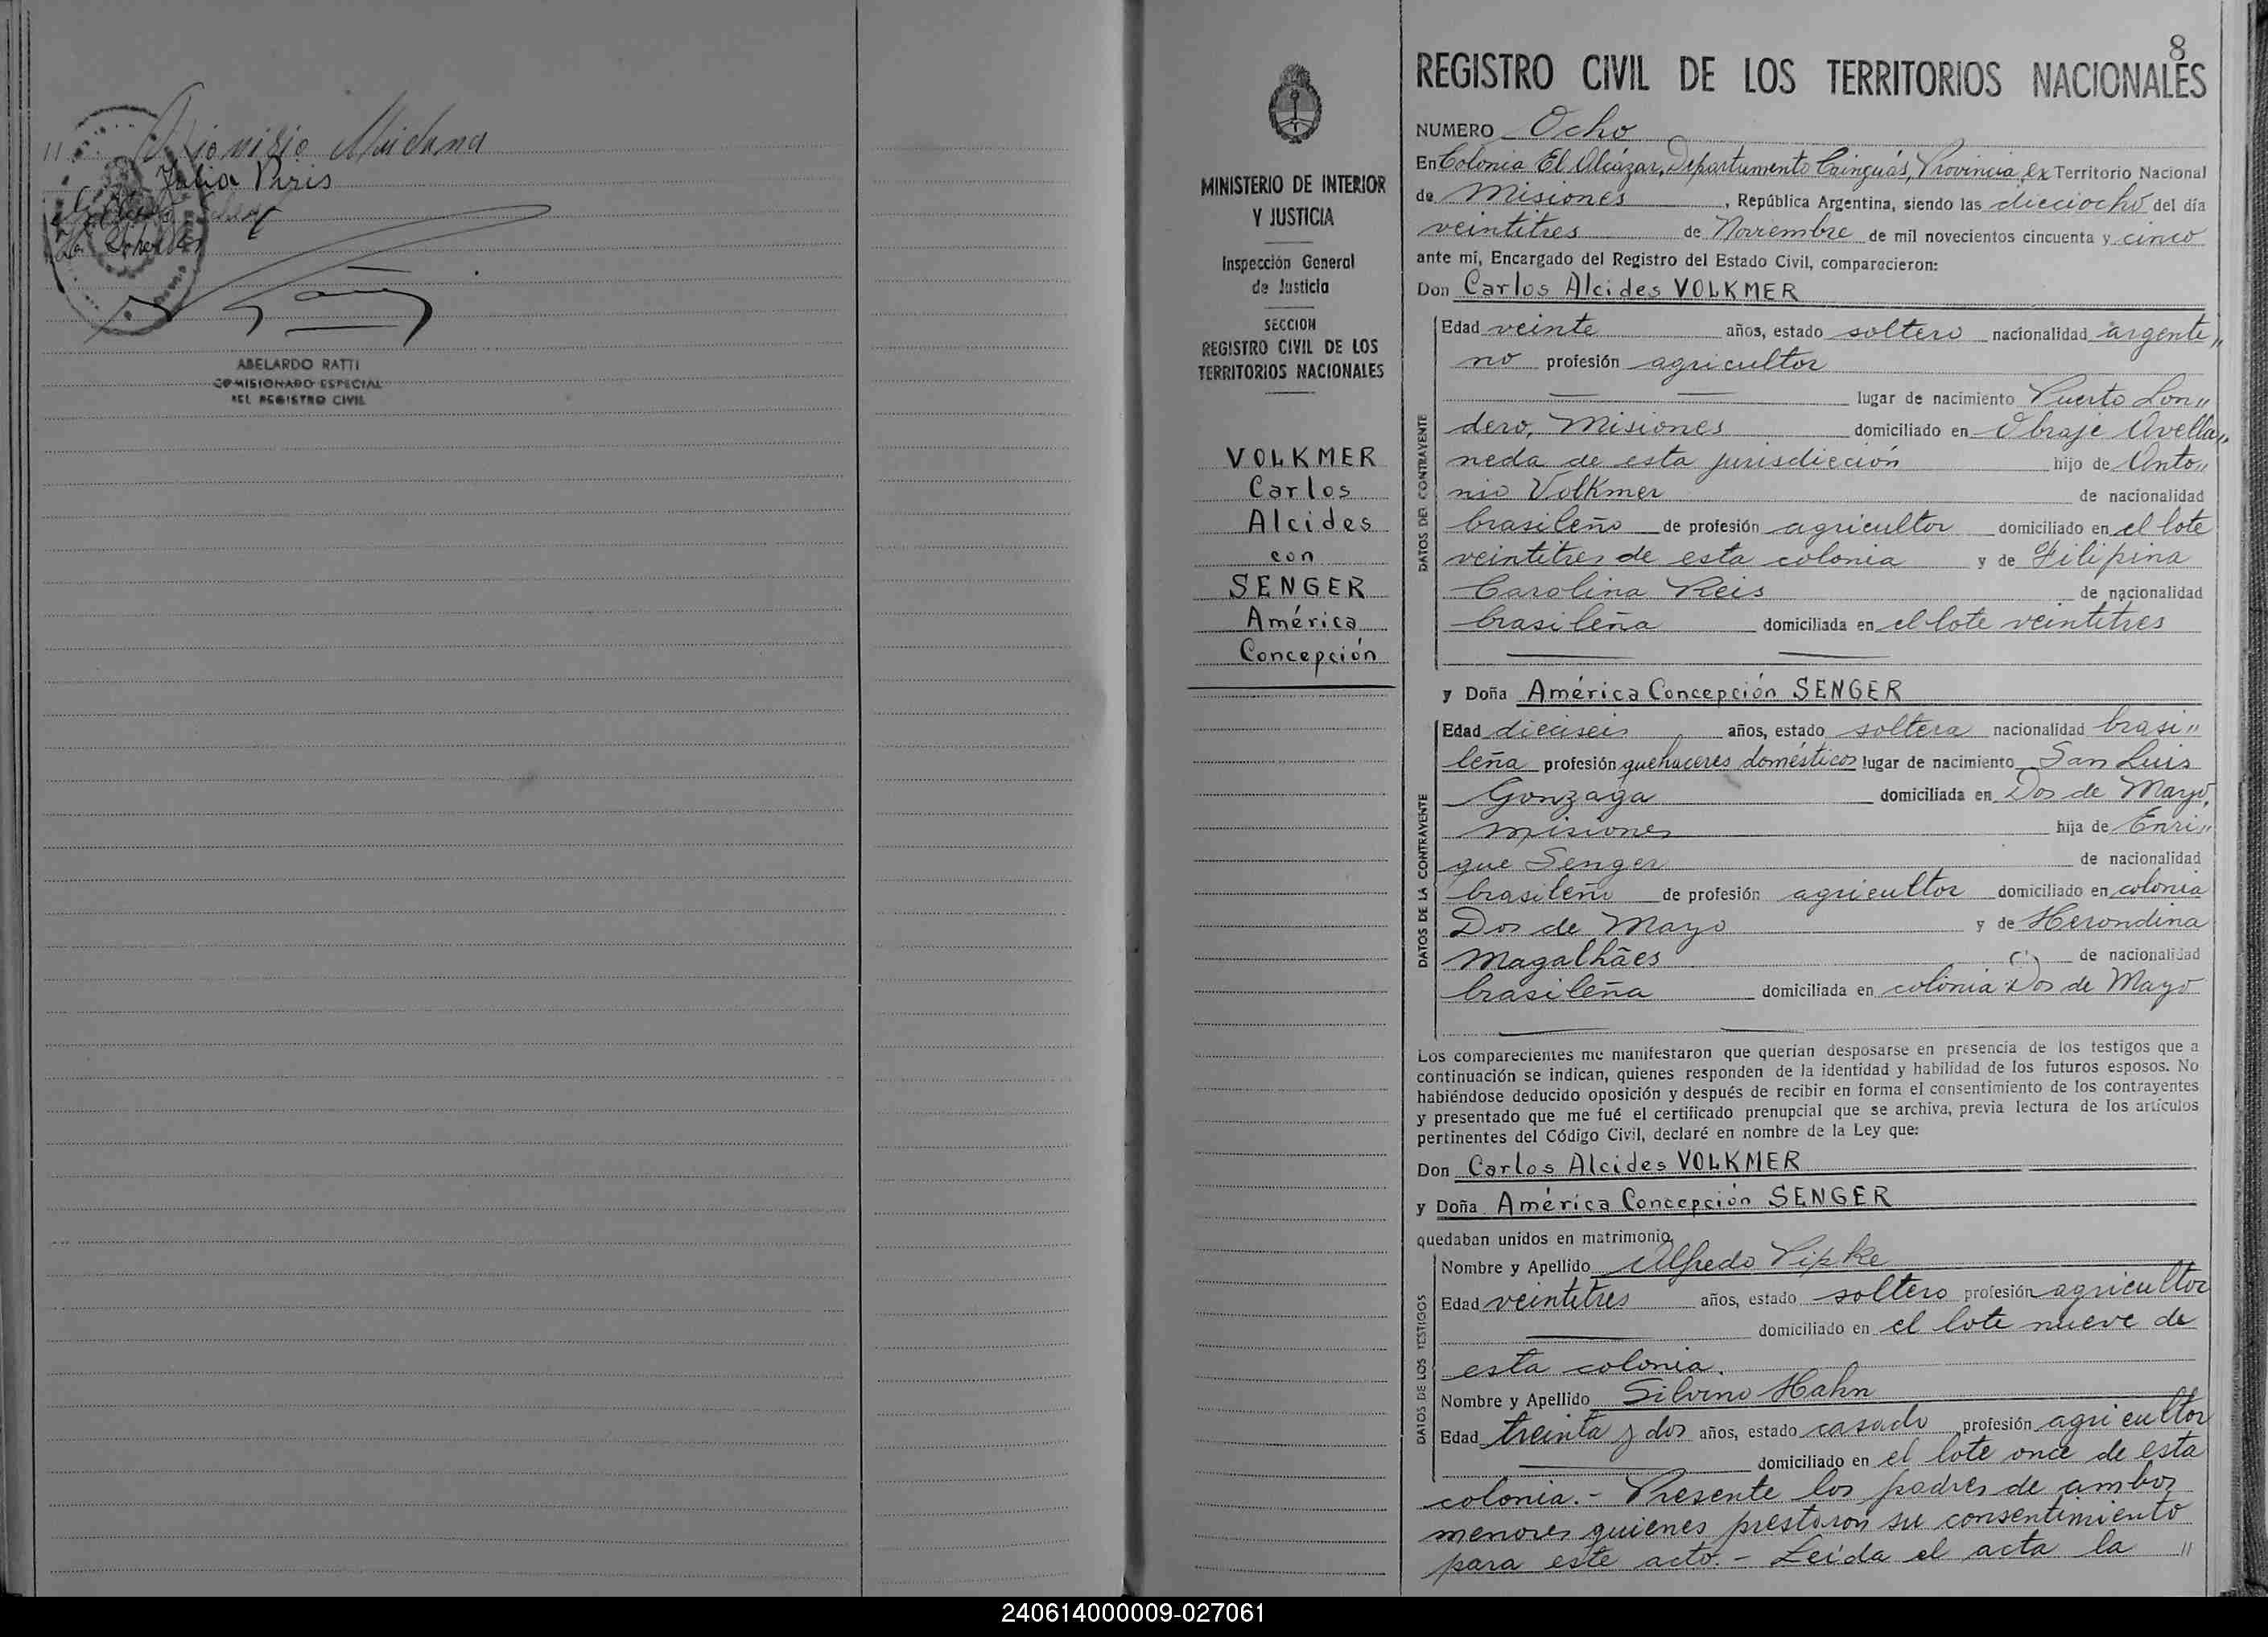 Dionisio Maidana
Julia Paris
ABELARDO RATTI
COMISIONADO ESPECIAL
DEL REGISTRO CIVIL
8
REGISTRO CIVIL DE LOS TERRITORIOS NACIONALES
MINISTERIO DE INTERIOR
Y JUSTICIA
Inspección General
de Justicia
SECCION
REGISTRO CIVIL DE LOS
TERRITORIOS NACIONALES
VOLKMER
Carlos
Alcides
con
SENGER
América
Concepción
NUMERO Ocho
En Colonia El Alcázar, Departamento Cainguás, Provincia, ex Territorio Nacional
de Misiones, República Argentina, siendo las dieciocho del día
veintitres de Noviembre de mil novecientos cincuenta y cinco
ante mí, Encargado del Registro del Estado Civil, comparecieron:
Don Carlos Alcides VOLKMER
DATOS DEL CONTRAYENTE
Edad veinte años, estado soltero nacionalidad argenti"
no profesión agricultor
lugar de nacimiento Puerto Lon"
dero, Misiones domiciliado en Obraje Avella"
neda de esta jurisdicción hijo de Anto"
nio Volkmer de nacionalidad
brasileño de profesión agricultor domiciliado en el lote
veintitres de esta colonia y de Filipina
Carolina Reis de nacionalidad
brasileña domiciliada en el lote veintitres
y Doña América Concepción SENGER
DATOS DE LA CONTRAYENTE
Edad dieciseis años, estado soltera nacionalidad brasi"
leña profesión quehaceres domésticos lugar de nacimiento San Luis
Gonzaga domiciliada en Dos de Mayo,
Misiones hija de Enri"
que Senger de nacionalidad
brasileño de profesión agricultor domiciliado en colonia
Dos de Mayo y de Herondina
Magalhães de nacionalidad
brasileña domiciliada en colonia Dos de Mayo
Los comparecientes me manifestaron que querían desposarse en presencia de los testigos que a
continuación se indican, quienes responden de la identidad y habilidad de los futuros esposos. No
habiéndose deducido oposición y después de recibir en forma el consentimiento de los contrayentes
y presentado que me fué el certificado prenupcial que se archiva, previa lectura de los artículos
pertinentes del Código Civil, declaré en nombre de la Ley que:
Don Carlos Alcides VOLKMER
y Doña América Concepción SENGER
quedaban unidos en matrimonio
DATOS DE LOS TESTIGOS
Nombre y Apellido Alfredo Pipke
Edad veintitres años, estado soltero profesión agricultor
domiciliado en el lote nueve de
esta colonia.
Nombre y Apellido Silvino Hahn
Edad treinta y dos años, estado casado profesión agricultor
domiciliado en el lote once de esta
colonia.- Presente los padres de ambos
menores quienes prestaron su consentimiento
para este acto.- Leída el acta la "
240614000009-027061